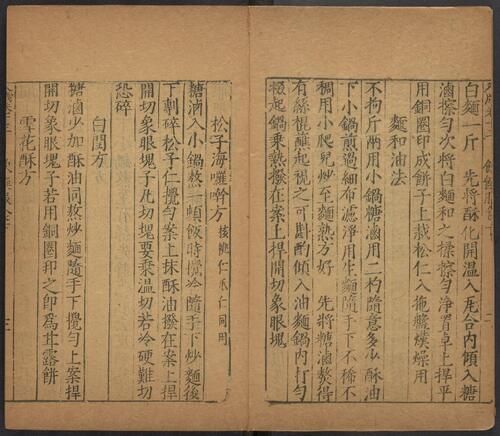 白麵一斤　先將酥化開溫入瓦合內傾入糖
滷擦勻次將白麵和之揉擦勻淨置卓上捍平
用銅圈印成餅子上栽松仁入拖盤熯燥用
麵和油法
不拘斤酌用小鍋糖滷用二杓隨意多少酥油
下小鍋煎過細布濾淨用生麵隨手下不稀不
稠用小爬兒炒至麵熟方好　先將糖滷熬得
有絲棍蘸起視之可斟酌傾入油麵鍋內打勻
掇起鍋乘熱撥在案上捍開切象眼塊
松子海囉𠹌方　核桃仁瓜仁同用
糖滷入小鍋熬一頓飯時攪冷隨手下炒麵後
下剁碎松子仁攪勻案上抹酥油撥在案上捍
開切象眼塊子凡切塊要乘溫切若冷硬難切
恐碎
白閏方
糖滷少加酥油同熬炒麵隨手下攪勻上案捍
開切象眼塊子若用銅圈印之即爲甘露餅
雪花酥方